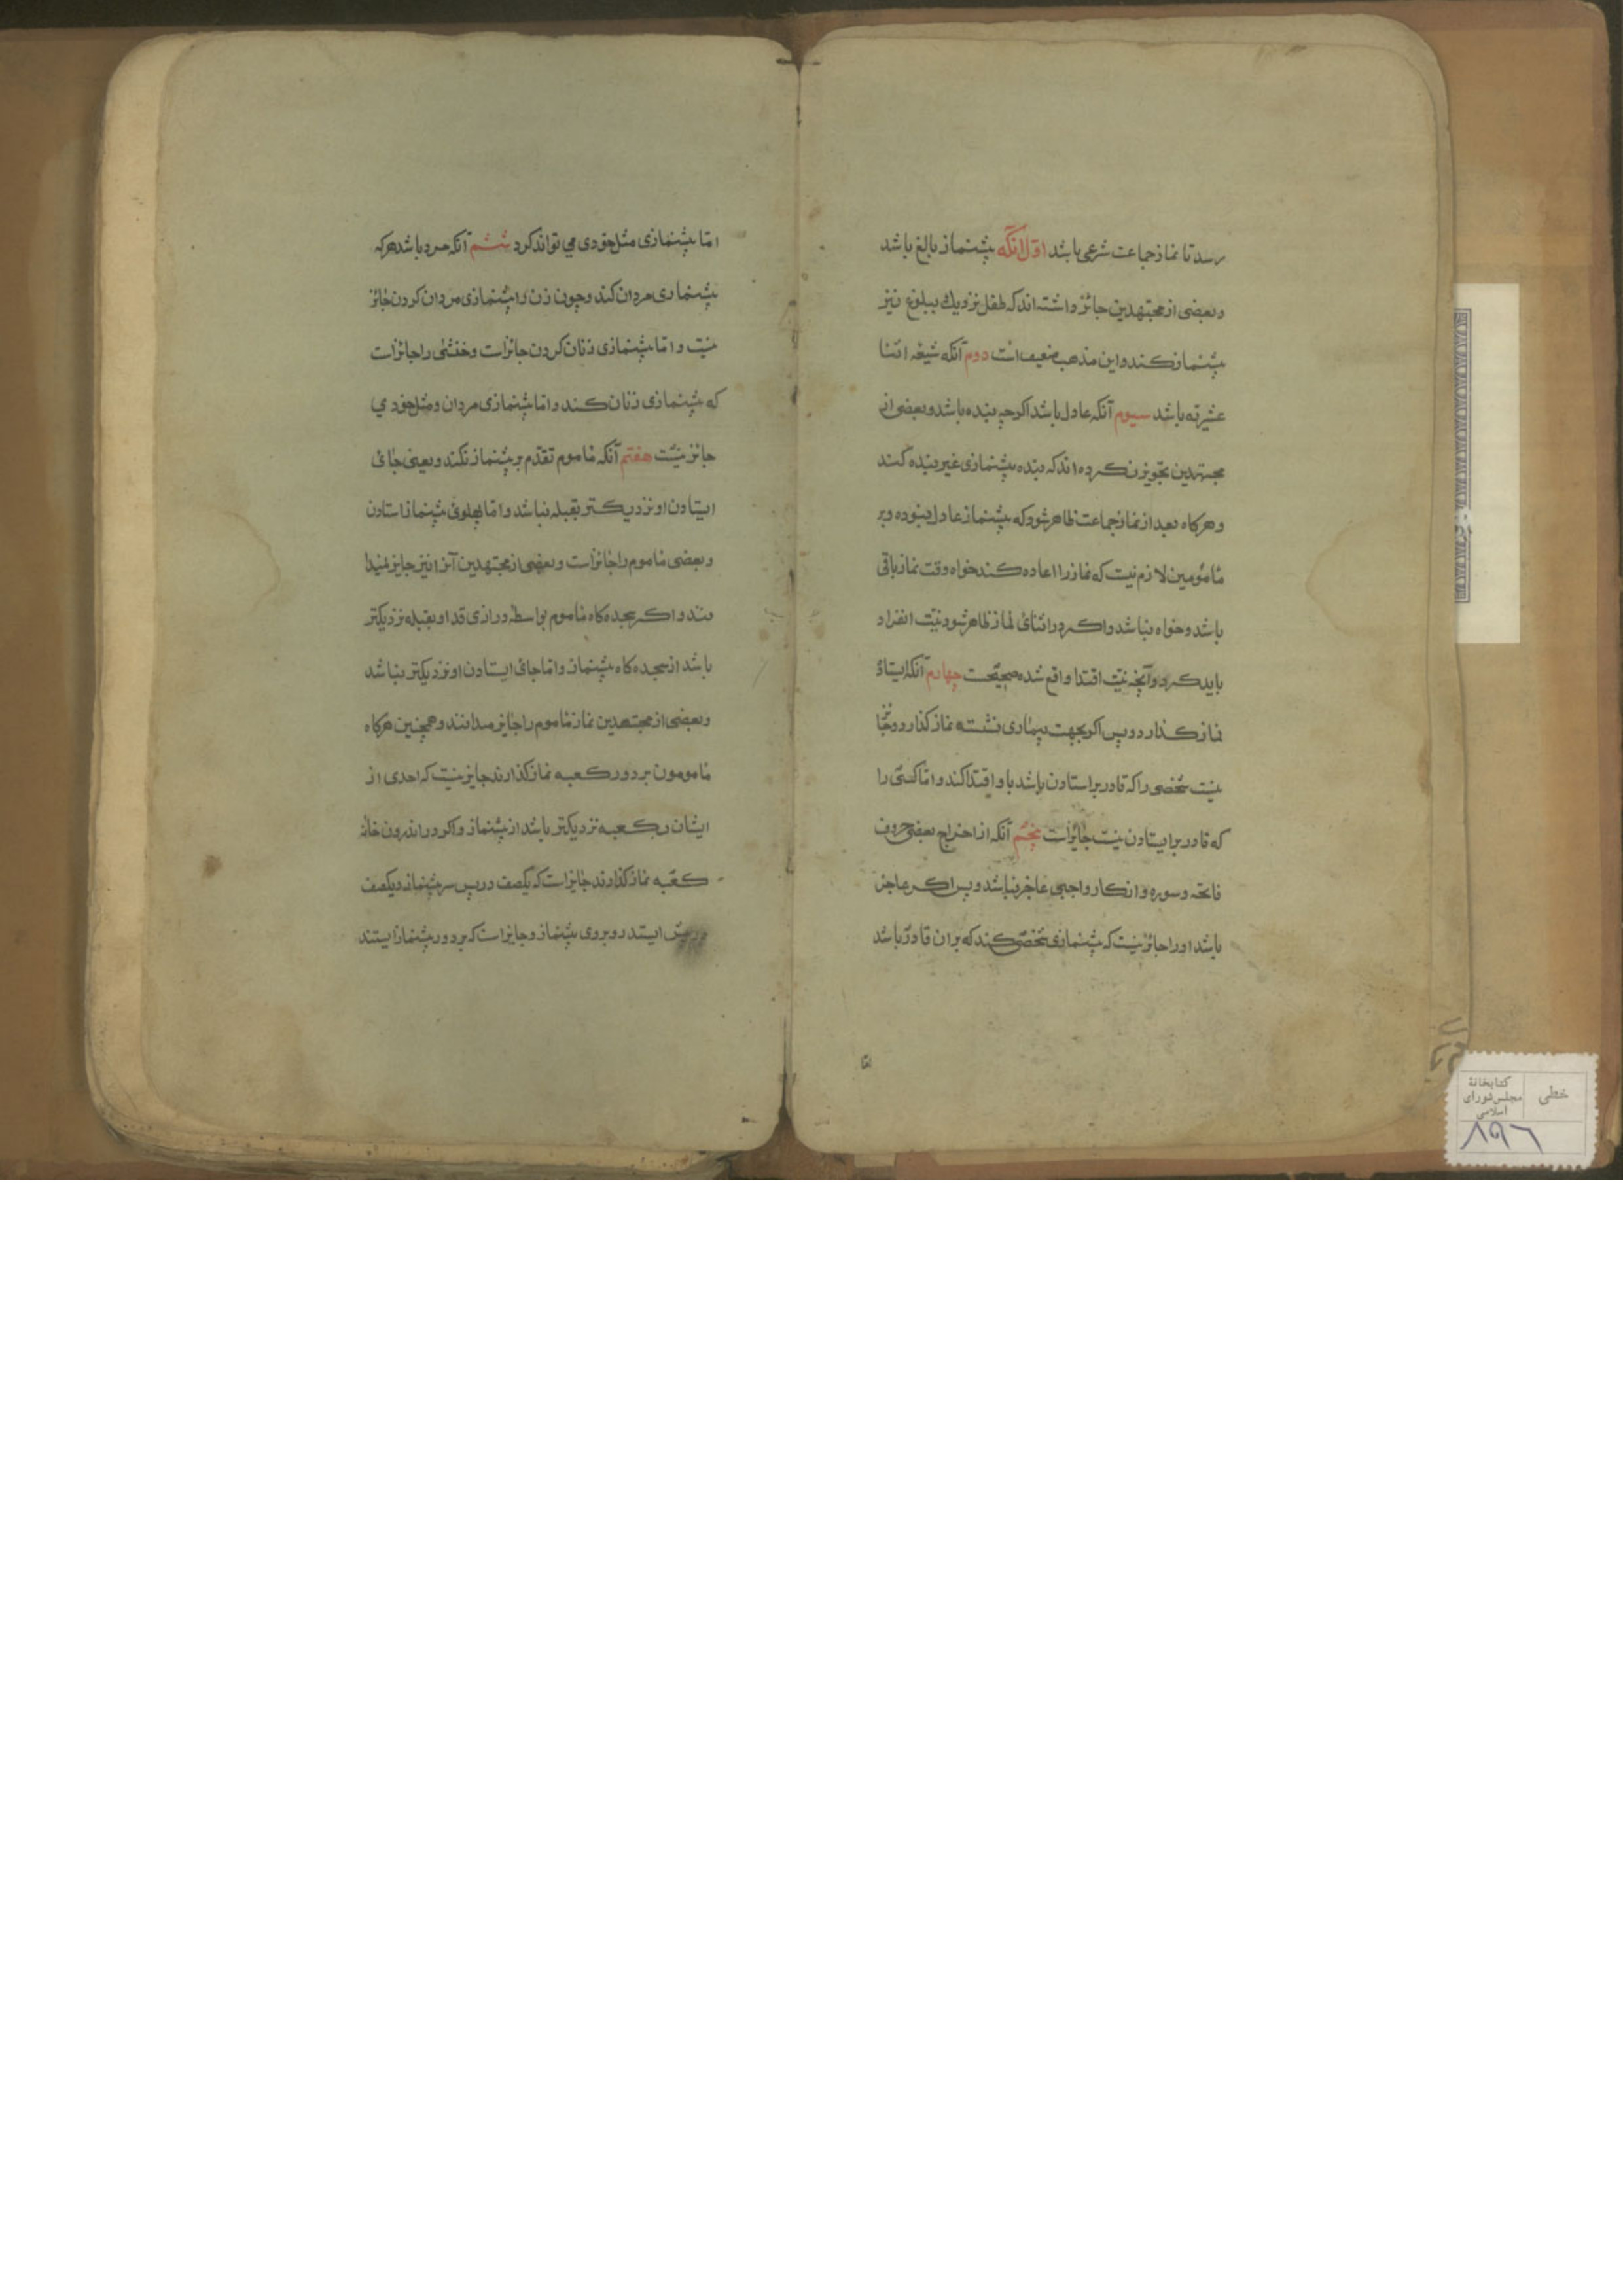 رسد تا نماز جماعت شرعی باشد اوّل آنکه پیشنماز بالغ باشد
وبعضی از مجتهدین جائز داشته‌اند که طفل نزدیك ببلوغ نیز
پیشنماز کند و این مذهب ضعیف است دوم آنکه شیعه اثنا
عشریه باشد سیوم آنکه عادل باشد اکرچه بنده باشد وبعضی از
مجتهدین تجویز نکرده‌اند که بنده پیشنمازی غیر بنده کند
وهرکاه بعد از نماز جماعت ظاهر شود که پیشنماز عادل نبوده وبر
مأمومین لازم نیست که نماز را اعاده کنند خواه وقت نماز باقی
باشد وخواه نباشد واکر در اثنای نماز ظاهر شود نیّت انفراد
باید کرد وآنچه نیّت اقتدا واقع شده صحیحست چهارم آنکه ایستاده
نماز کذارد وپس اکر بجهت بیماری نشسته نماز کذارد وجائز
نیست شخصی را که قادر بر استادن باشد باو اقتدا کند وامّا کسی را
که قادر بر ایستادن نیست جائز است پنجم آنکه از اخراج بعضی حروف
فاتحه وسوره و اذکار واجبی عاجز نباشد وپس اکر عاجز
باشد او را جائز نیست که پیشنمازی شخصی کند که بران قادر باشد
امّا
امّا پیشنمازی مثل خودی می تواند کرد ششم آنکه مرد باشد هرکه
پیشنمازی مردان کند وچون زن را پیشنمازی مردان کردن جائز
نیست و امّا پیشنمازی زنان کردن جائز است وخنثی را جائز است
که پیشنمازی زنان کند وامّا پیشنمازی مردان ومثل خودي
جائز نیست هفتم آنکه مأموم تقدّم بر پیشنماز نکند ویعنی جای
ایستادن او نزدیکتر بقبله نباشد وامّا پهلوی پیشنماز استادن
وبعضی مأموم را جائز است وبعضی از مجتهدین آنرا نیز جایز نمیدا
نند واکر سجده‌کاه مأموم بواسطه درازی قد او بقبله نزدیکتر
باشد از سجده کاه پیشنماز وامّا جای ایستادن او نزدیکتر نباشد
وبعضی از مجتهدین نماز مأموم را جایز میدانند وهمچنین هرکاه
مأمومون بر دور کعبه نماز کذارند جایز نیست که احدی از
ایشان بکعبه نزدیکتر باشد از پیشنماز واکر در اندرون خانه
کعبه نماز کذارند جایز است که یکصف در پس سر پیشنماز ویکصف
در پیش ایستد روبروی پیشنماز وجایز است که بر دور پیشنماز ایستند
خطی
کتابخانهٔ
مجلس شورای
اسلامی
۸۹۶